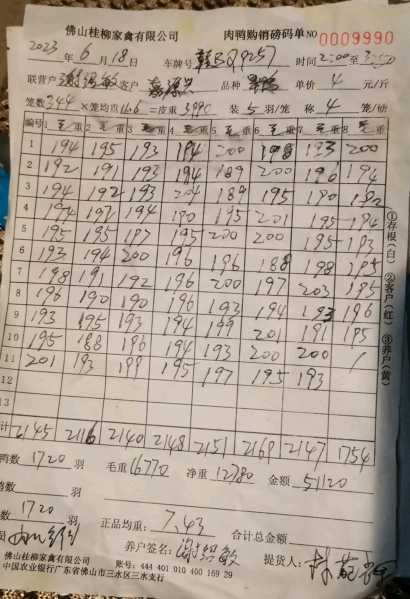 佛山桂柳家禽有限公司 肉鸭购销磅码单 NO 0009990
2023 年 6 月 18 日 车牌号 赣BQ9257 时间 2:00
联营户 谢绍敏 客户 品种 单价 4 元/斤
笼数 344 × 笼均 11.6 = 皮重 3990 装 5 羽/笼 称 4 笼/磅
编号 1 毛重 2 毛重 3 毛重 4 毛重 5 毛重 6 毛重 7 毛重 8 毛重
1 194 195 193 194 200 198 193 200
2 192 191 193 194 189 200 196 194
3 194 192 193 204 189 195 190 182
4 194 192 194 190 195 201 195 194
5 195 195 187 195 200 200 195 183
6 193 194 200 196 196 188 198 185
7 198 191 192 196 200 197 203 185
8 196 190 190 196 193 194 193 196
9 193 195 193 194 199 201 191 185
10 195 188 186 194 193 200 200 /
11 201 193 199 195 197 195 193
12
13
计 2145 2116 2140 2148 2151 2169 2147 1754
鸭数 1720 羽 毛重 16770 净重 12780 金额 51120
鸭数 羽
数 1720 羽 正品均重: 7.43 合计总金额
养户签名: 谢绍敏 提货人:
佛山桂柳家禽有限公司 账号: 444 401 010 400 169 29
中国农业银行广东省佛山市三水区三水支行
①存根(白) ②客户(红) ③养户(黄)